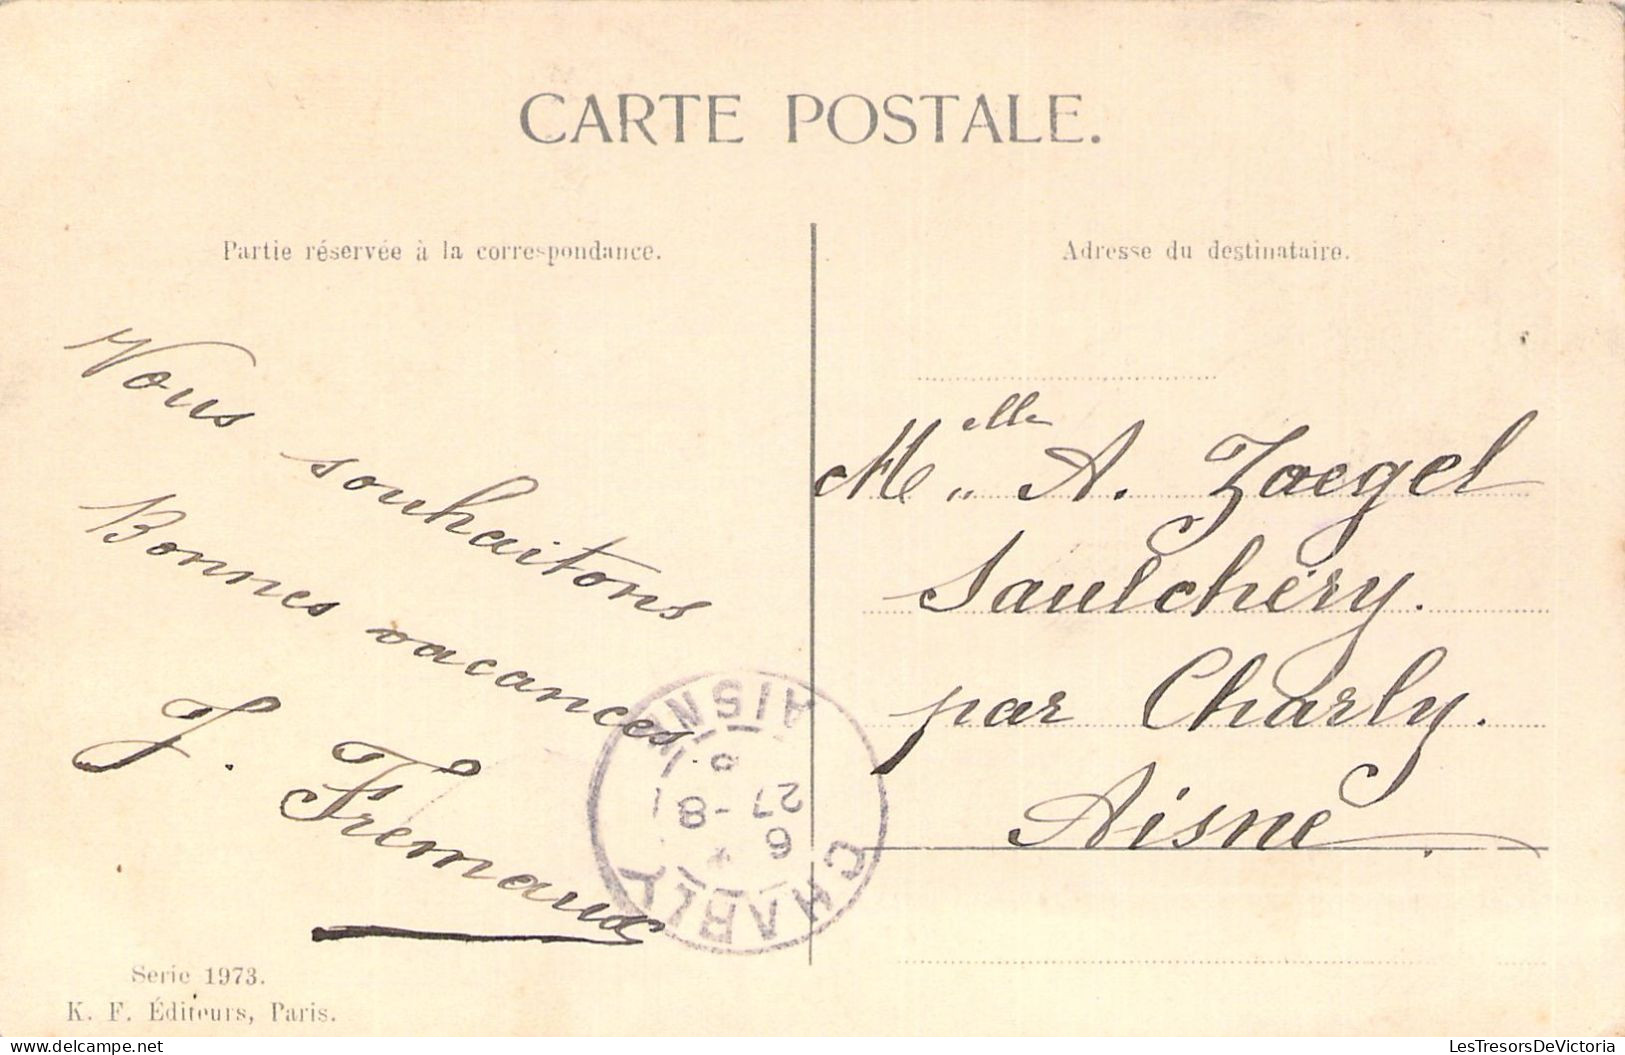 CARTE POSTALE.
Partie réservée à la correspondance.
Adresse du destinataire.
Vous souhaitons
Bonnes vacances.
J. Fremaux
Melle A. Zaegel
Saulchéry.
par Charly.
Aisne.
CHARLY
6
27-8
AISNE
Serie 1973.
K. F. Éditeurs, Paris.
LesTresorsDeVictoria
delcampe.net